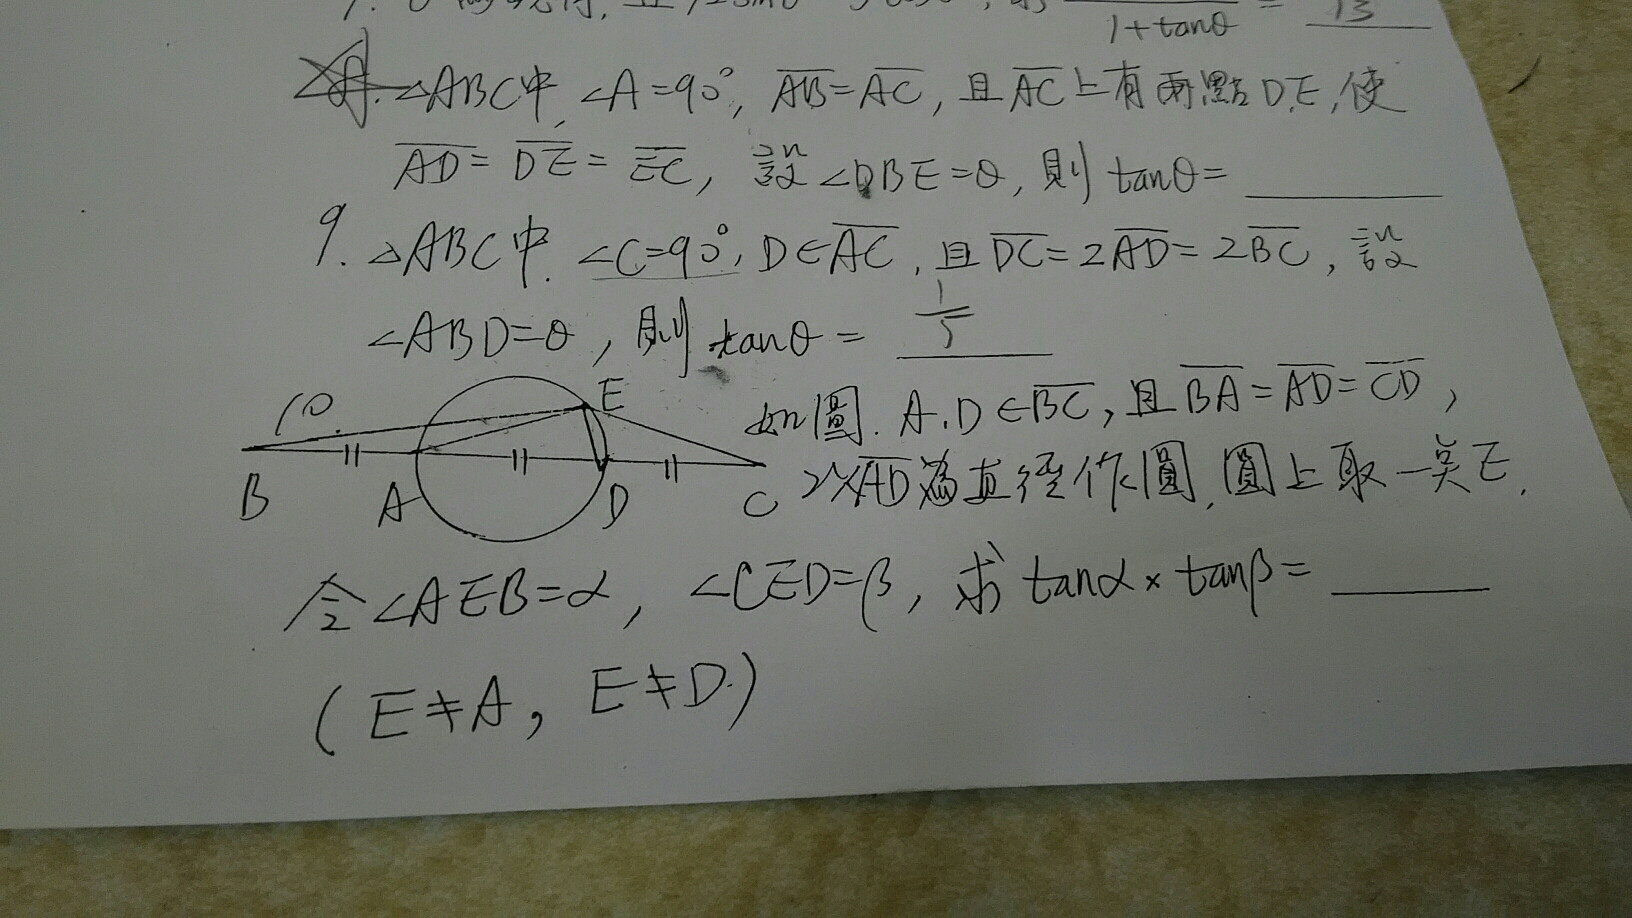 1+tanθ = 13
∠ABC中, ∠A=90°, AB=AC, 且AC上有兩點D,E,使
AD=DE=EC, 設∠DBE=θ, 則tanθ=
9. △ABC中, ∠C=90°, D∈AC, 且DC=2AD=2BC, 設
∠ABD=θ, 則tanθ= 1/5
10. 如圖. A,D∈BC, 且BA=AD=CD,
以AD為直徑作圓, 圓上取一點E,
E
B A D C
令∠AEB=α, ∠CED=β, 求tanα×tanβ=
(E≠A, E≠D)